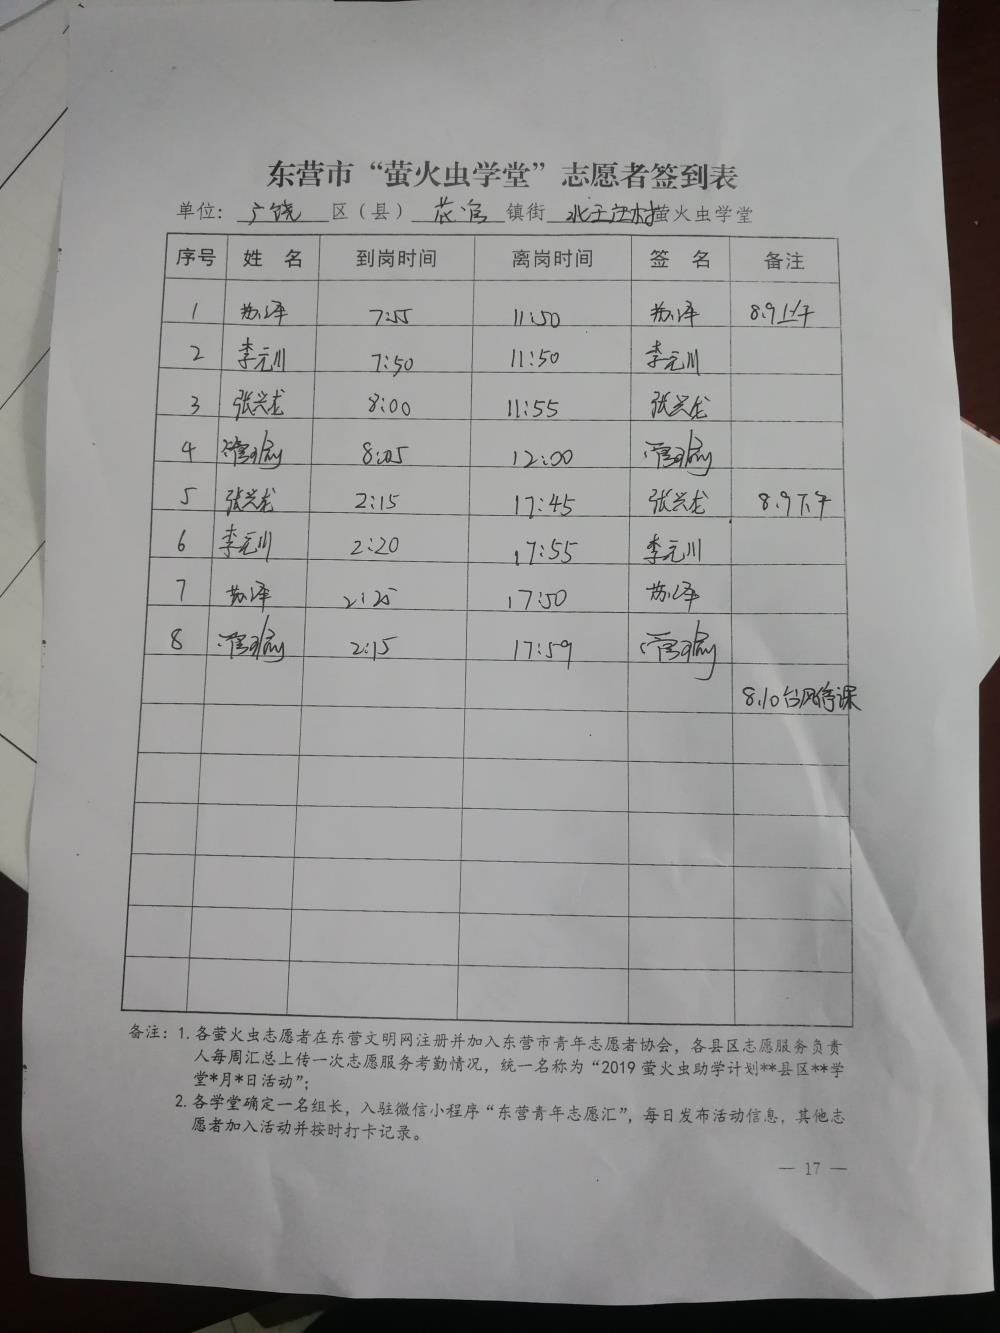 东营市“萤火虫学堂”志愿者签到表
单位：广饶区（县）花官镇街北王庄村萤火虫学堂
序号 姓名 到岗时间 离岗时间 签名 备注
1 苏泽 7:55 11:50 苏泽 8.9上午
2 李元川 7:50 11:50 李元川
3 张兴龙 8:00 11:55 张兴龙
4 8:05 12:00
5 张兴龙 2:15 17:45 张兴龙 8.9下午
6 李元川 2:20 17:55 李元川
7 苏泽 2:25 17:50 苏泽
8 2:15 17:59
8.10台风停课
备注：1. 各萤火虫志愿者在东营文明网注册并加入东营市青年志愿者协会，各县区志愿服务负责
人每周汇总上传一次志愿服务考勤情况，统一名称为“2019萤火虫助学计划**县区**学
堂*月*日活动”；
2. 各学堂确定一名组长，入驻微信小程序“东营青年志愿汇”，每日发布活动信息，其他志
愿者加入活动并按时打卡记录。
— 17 —